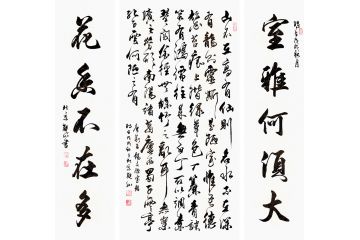 室雅何須大
山不在高有仙則名水不在深
有龍則靈斯是陋室惟吾德
馨苔痕上階綠草色入簾青談
笑有鴻儒往來無白丁可以調素
琴閱金經無絲竹之亂耳無案
牘之勞形南陽諸葛廬西蜀子雲亭
孔子云何陋之有
花香不在多